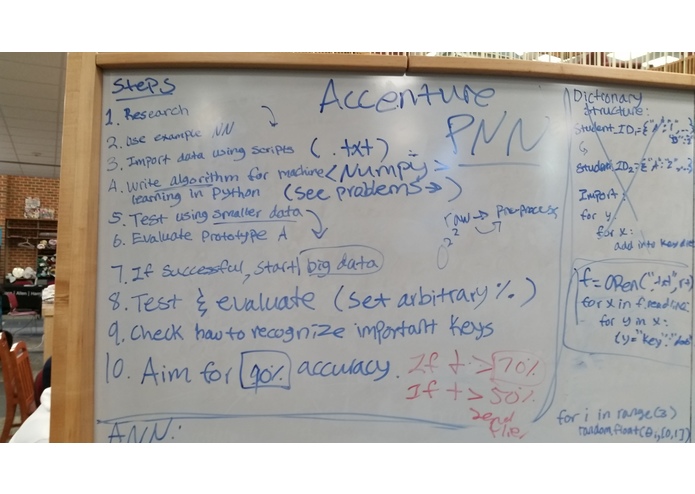 Steps
Accenture
PNN
1. Research
2. Use example NN
3. Import data using scripts (.txt)
4. Write algorithm for machine <Numpy>
learning in Python (see problems →)
5. Test using smaller data
6. Evaluate Prototype A
raw → pre-process
7. If successful, start big data
8. Test & evaluate (set arbitrary %)
9. Check how to recognize important keys
10. Aim for 90% accuracy.
If t > 70%
If t > 50%
send
ANN:
Dictionary
Structure:
Student_ID
Student_ID2
Import:
for y
for x:
add into key
f = open(".txt",
for x in f.read
for y in x:
(y="key":
for i in range(3)
random.float(